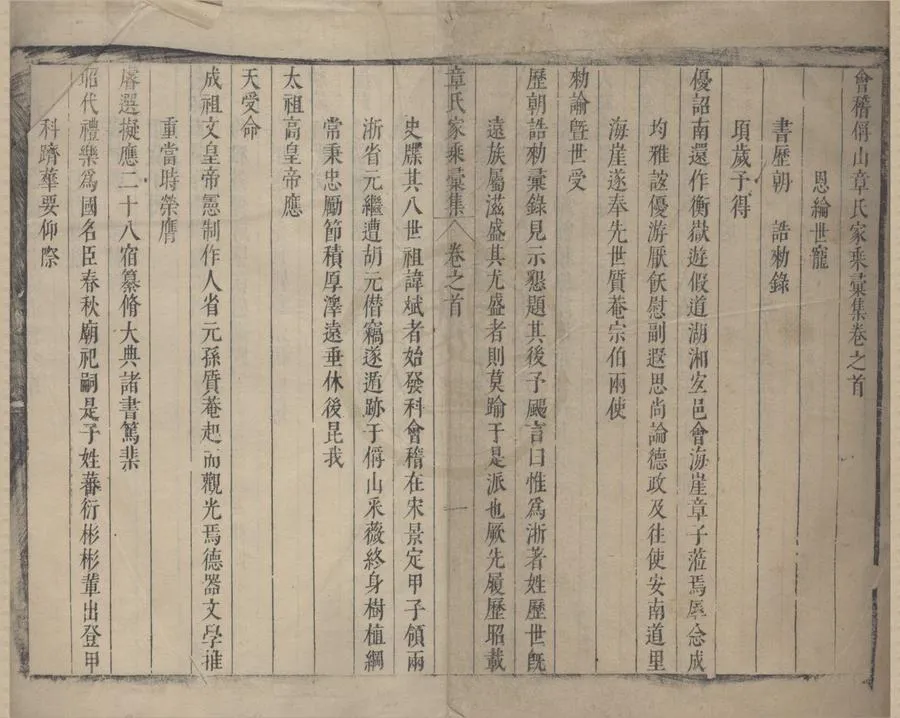 會稽偁山章氏家乘彙集卷之首
恩綸世寵
書歷朝 誥勅錄
項歲予得
優詔南還作衡嶽遊假道湖湘安邑會海崖章子蒞焉辱念成
均雅誼優游厭飫慰副遐思尚論德政及往使安南道里
海崖遂奉先世質菴宗伯兩使
勅諭曁世受
歷朝誥勅彙錄見示懇題其後予颺言曰惟爲浙著姓歷世旣
遠族屬滋盛其尤盛者則莫踰于是派也厥先履歷昭載
章氏家乘彙集 卷之首 一
史牒其八世祖諱斌者始發科會稽在宋景定甲子領兩
浙省元繼遭胡元僣竊遂遁跡于偁山采薇終身樹植綱
常秉忠勵節積厚澤遠垂休後昆我
太祖高皇帝應
天受命
成祖文皇帝憲制作人省元孫質菴起而觀光焉德器文學推
重當時榮膺
睿選擬應二十八宿纂脩大典諸書篤棐
昭代禮樂爲國名臣春秋廟祀嗣是子姓蕃衍彬彬輩出登甲
科躋華要仰際